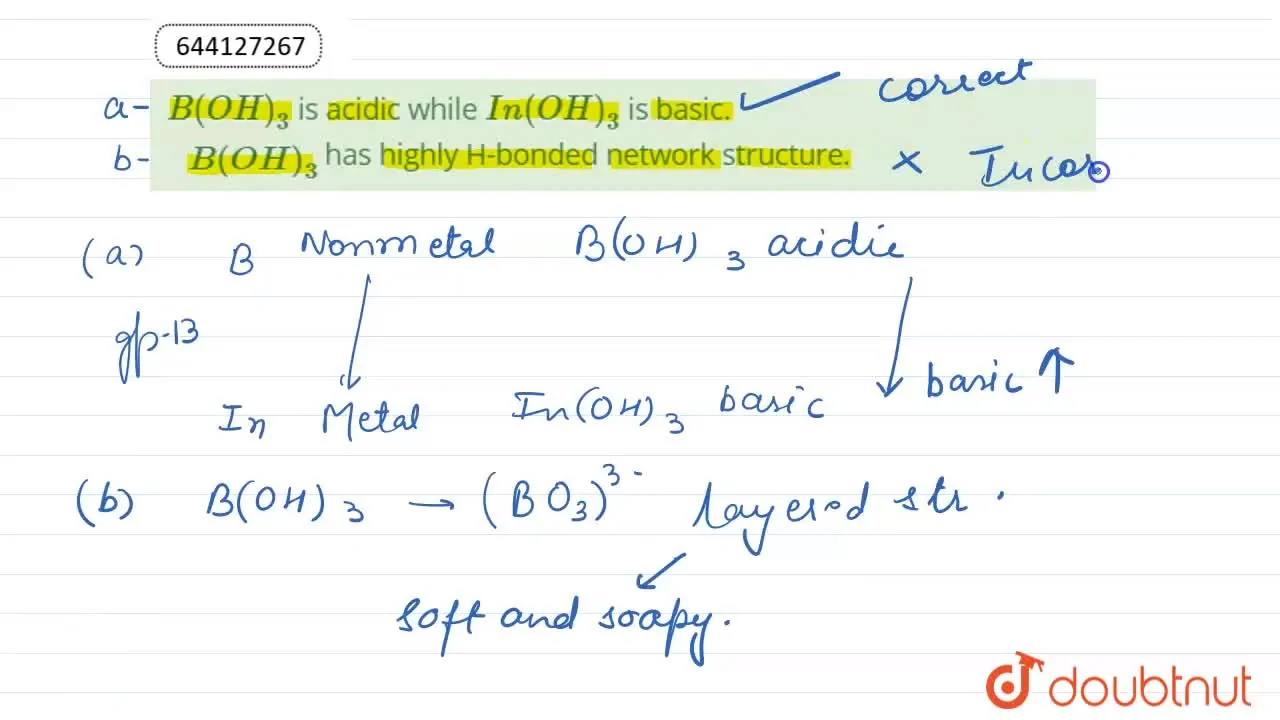 644127267
a- B(OH)₃ is acidic while In(OH)₃ is basic. ✓ correct
b- B(OH)₃ has highly H-bonded network structure. × Incor
(a) B Nonmetal B(OH)₃ acidic
gp-13
basic ↑
In Metal In(OH)₃ basic
(b) B(OH)₃ → (BO₃)³⁻ layered str.
soft and soapy.
doubtnut